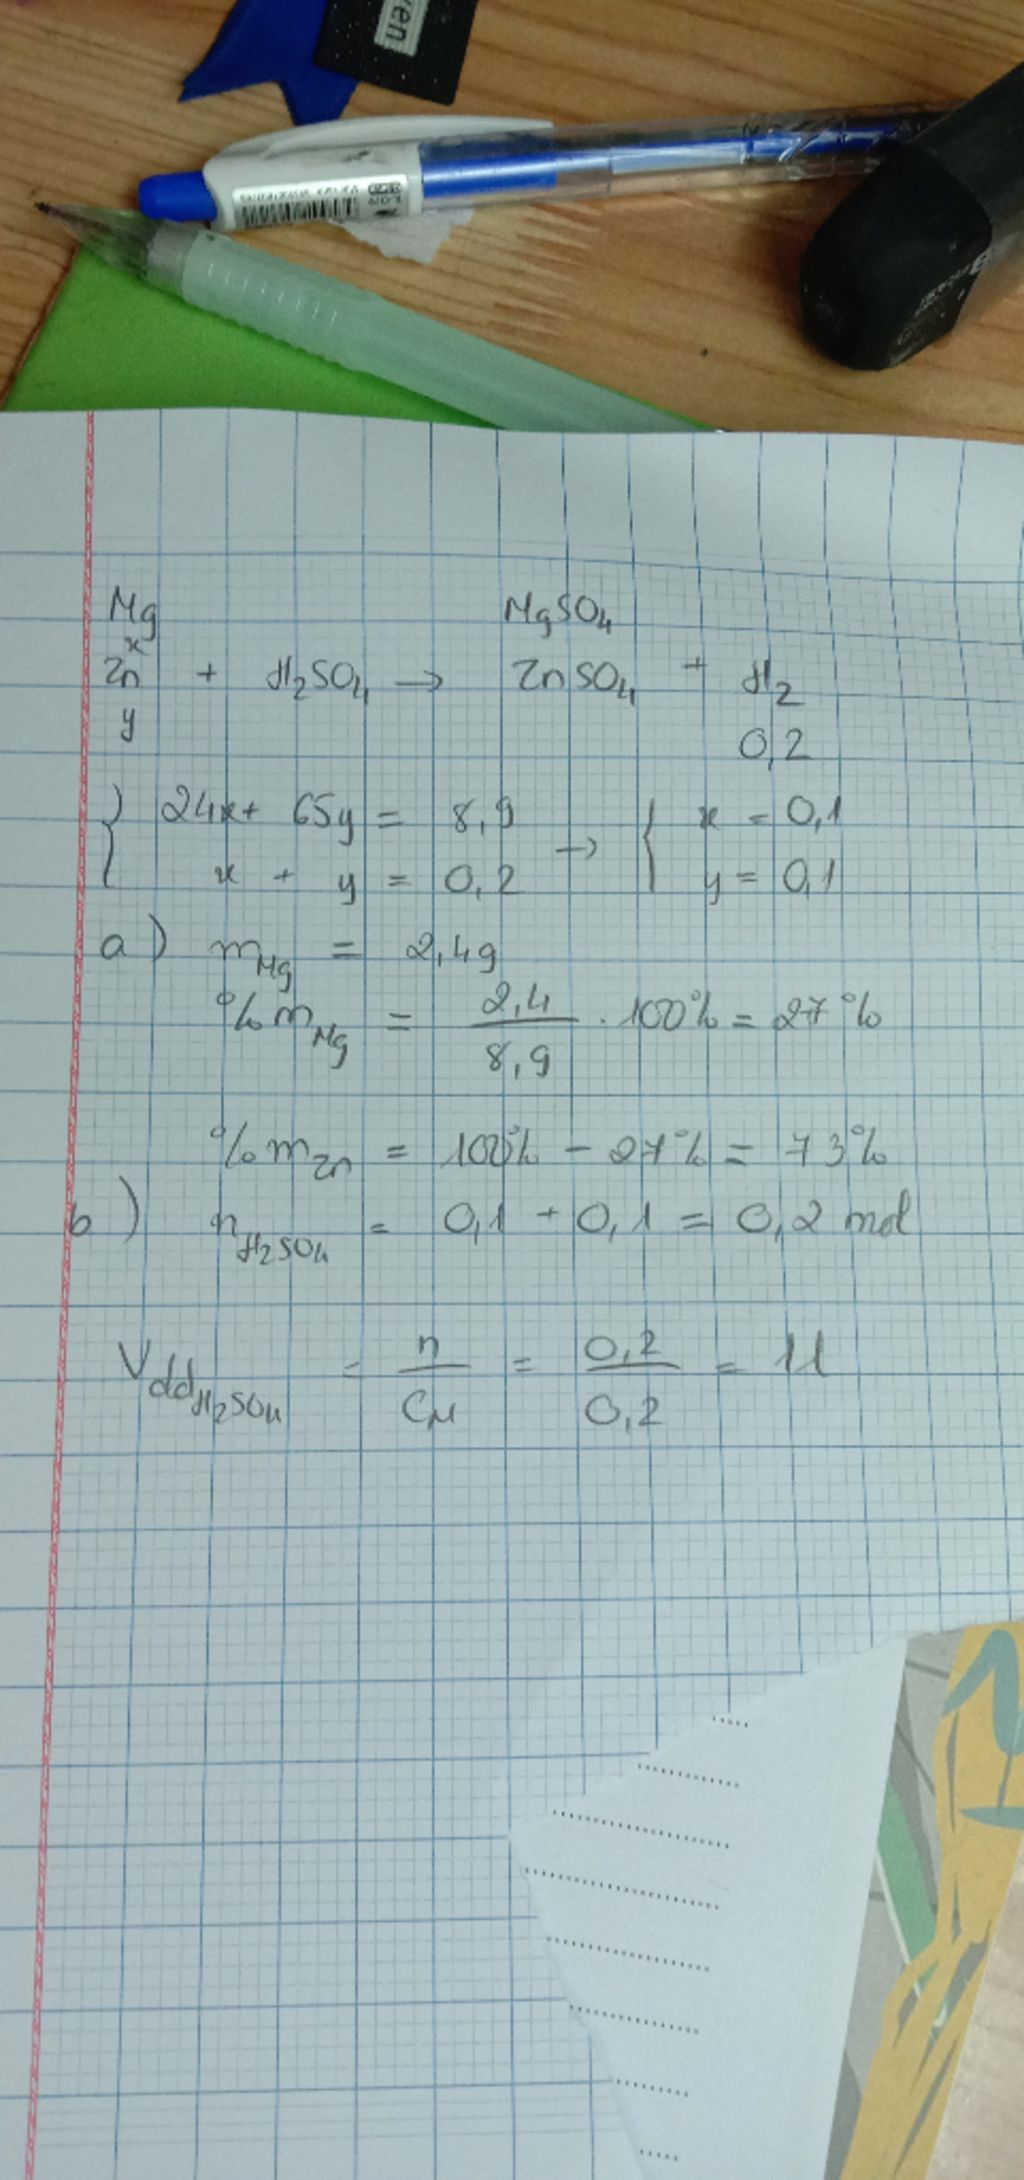 ven
Mg MgSO4
x
Zn + H2SO4 → ZnSO4 + H2
y 0,2
{ 24x + 65y = 8,9 → { x = 0,1
x + y = 0,2 y = 0,1
a) mMg = 2,4g
%mMg = 2,4 / 8,9 . 100% = 27%
%mZn = 100% - 27% = 73%
b) nH2SO4 = 0,1 + 0,1 = 0,2 mol
VddH2SO4 = n / CM = 0,2 / 0,2 = 1l